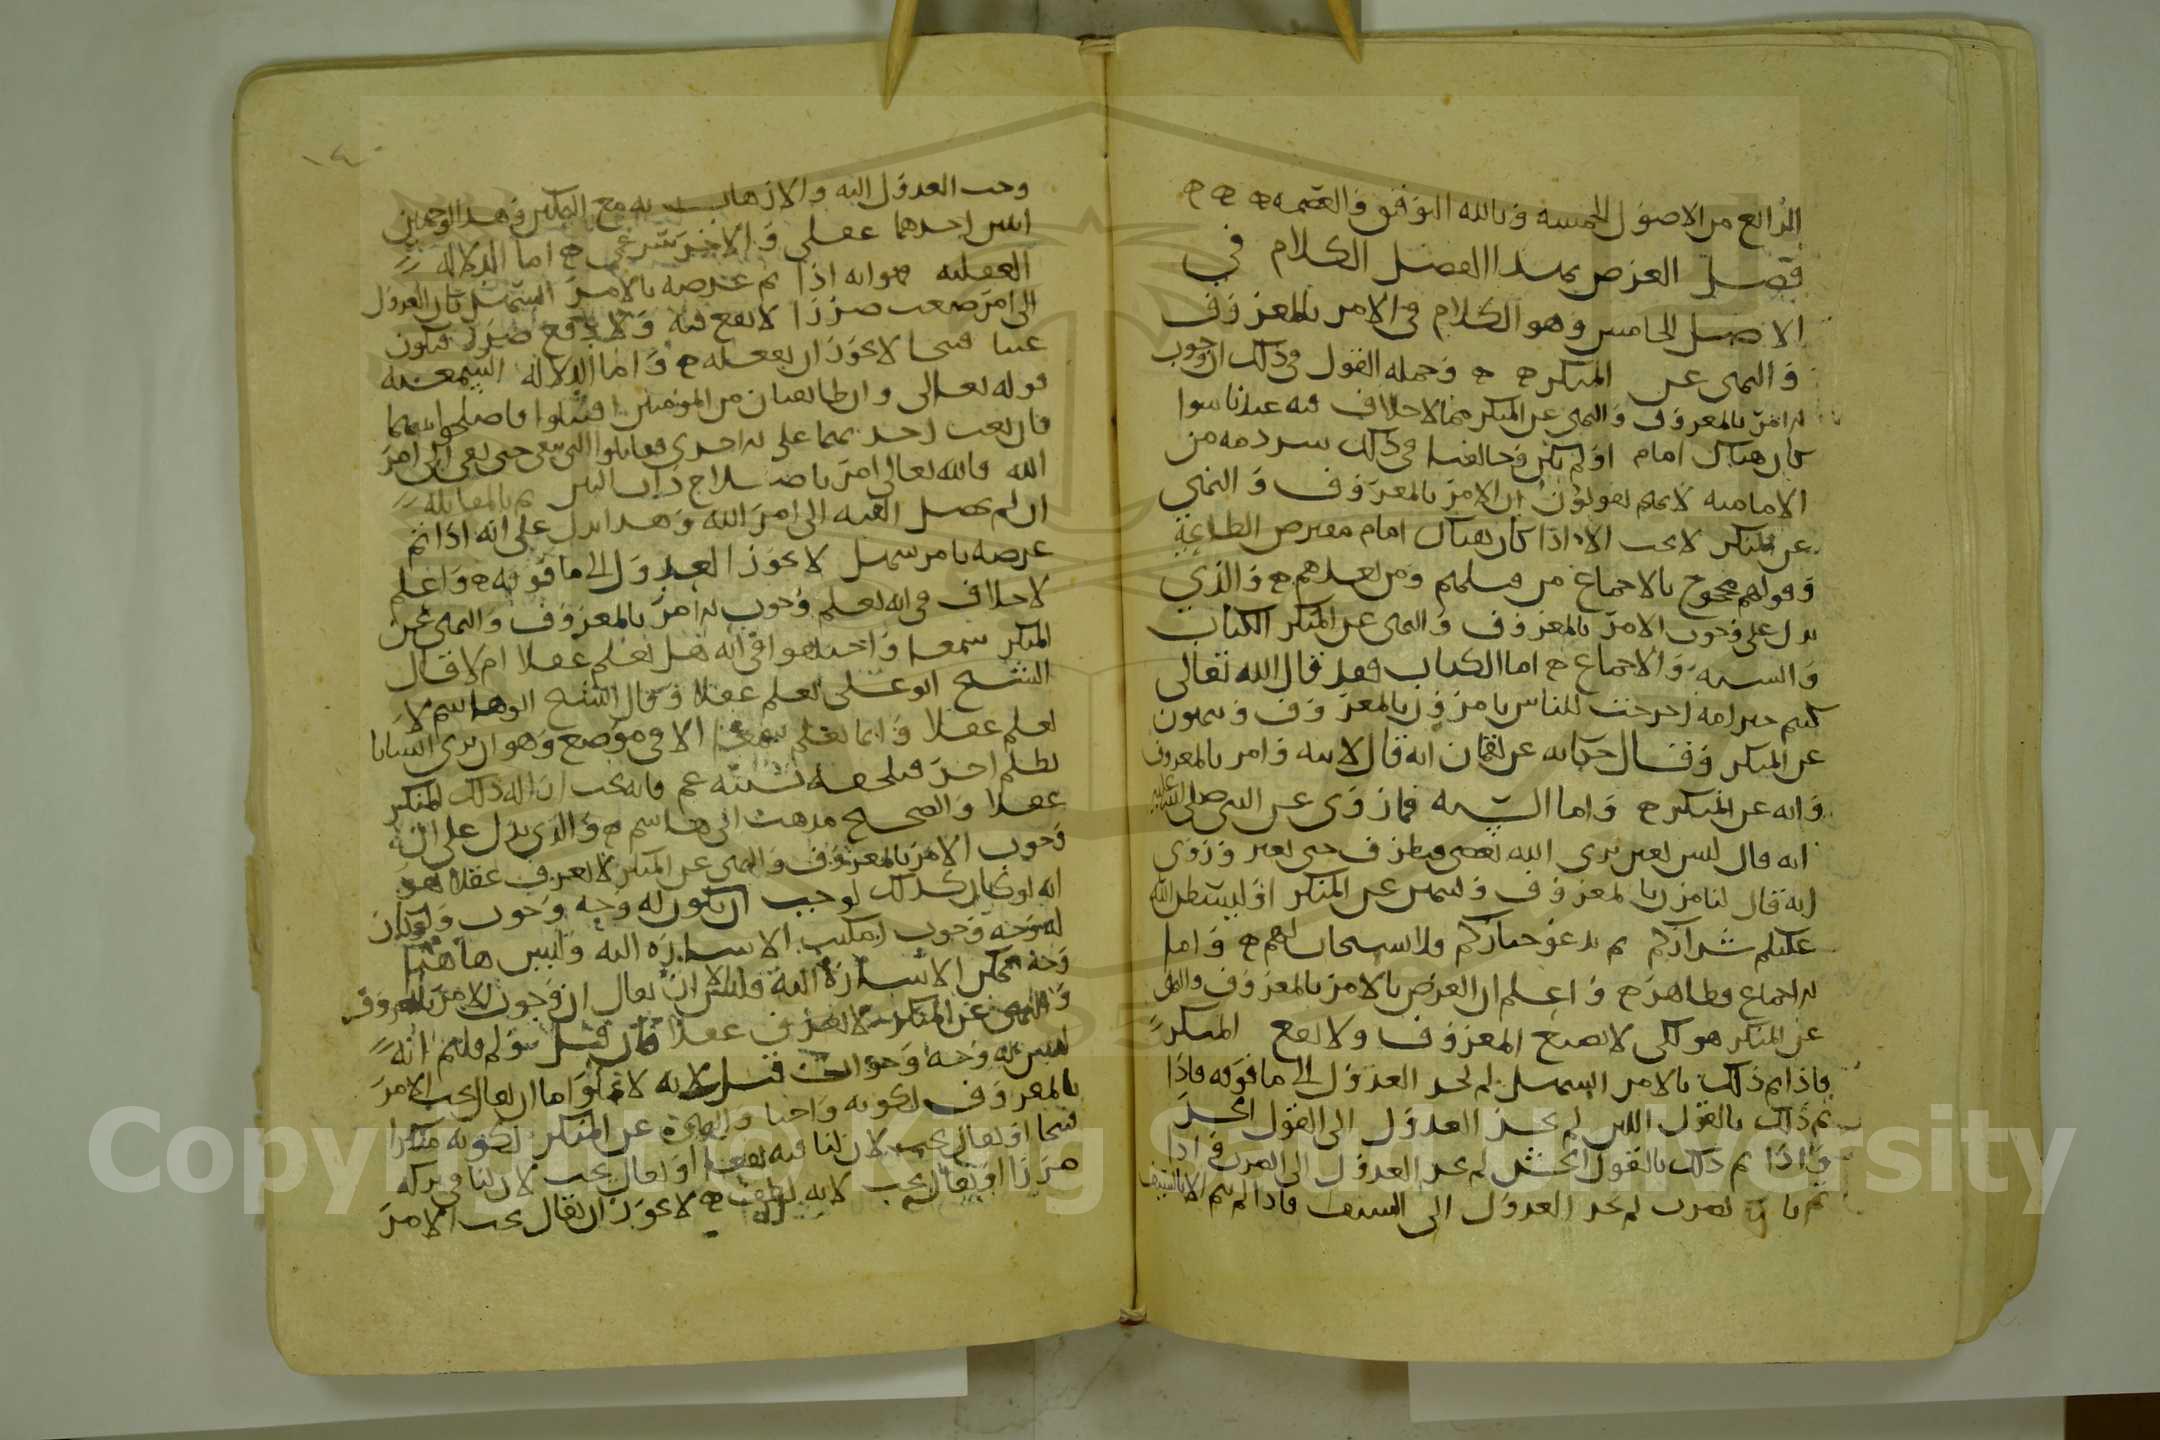 الرابع من الاصول الخمسه وبالله التوفيق والعصمه
فصل الغرض بهذا الفصل الكلام في
الاصل الخامس وهو الكلام في الامر بالمعروف
والنهي عن المنكر وجمله القول في ذلك ان وجوب
الامر بالمعروف والنهي عن المنكر مما لا خلاف فيه عندنا سوا
كان هناك امام اولم يكن وخالفنا في ذلك شردمه من
الاماميه لانهم يقولون ان الامر بالمعروف والنهي
عن المنكر لا يجب الا اذا كان هناك امام مفترض الطاعة
وقولهم محجوج بالاجماع من قبلهم ومن بعدهم والذي
يدل على وجوب الامر بالمعروف والنهي عن المنكر الكتاب
والسنة والاجماع اما الكتاب فقد قال الله تعالى
كنتم خير امه اخرجت للناس تامرون بالمعروف وتنهون
عن المنكر وقال حكايه عن لقمان انه قال لابنه وامر بالمعروف
وانه عن المنكر واما السنه فما روي عن النبي صلى الله عليه
انه قال ليس لعين ترى الله يعصى فتطرف حتى تغير وروي
انه قال لتامرن بالمعروف ولتنهن عن المنكر او ليسلطن الله
عليكم شراركم ثم يدعو خياركم فلا يستجاب لهم واما
الاجماع فظاهر واعلم ان الغرض بالامر بالمعروف والنهي
عن المنكر هو لكي لا يضيع المعروف ولا يقع المنكر
فاذا تم ذلك بالامر السهل لم يجز العدول الى ما فوقه فاذا
تم ذلك بالقول اللين لم يجز العدول الى القول الخشن
واذا تم ذلك بالقول الخشن لم يجز العدول الى الضرب فاذا
تم بالضرب لم يجز العدول الى السيف فاذا لم يتم الا بالسيف
وجب العدول اليه والارهاب به مع التمكين وهذا الوجهين
احدهما عقلي والاخر شرعي اما الدلاله
العقليه فهو انه اذا تم غرضه بالامر السهل كان العدول
الى امر صعب ضررا لا نفع فيه ولا دفع ضرر فيكون
عبثا قبيحا لا يجوز ان يفعله واما الدلاله السمعيه
قوله تعالى وان طايفتان من المومنين اقتتلوا فاصلحوا بينهما
فان بغت احديهما على الاخرى فقاتلوا التي تبغي حتى تفي الى امر
الله فالله تعالى امر باصلاح ذات البين ثم بالمقاتله
ان لم يحصل الفيه الى امر الله وهذا يدل على انه اذا تم
غرضه بامر سهل لا يجوز العدول الى ما فوقه واعلم
لا خلاف في انه يعلم وجوب الامر بالمعروف والنهي عن
المنكر سمعا واختلفوا في انه هل يعلم عقلا ام لا قال
الشيخ ابو علي يعلم عقلا وقال الشيخ ابو هاشم لا
يعلم عقلا وانما يعلم سمعا الا في موضع وهو ان يرى انسانا
يظلم اخر فيلحقه بسببه غم فانه يجب ازاله ذلك المنكر
عقلا والصحيح مذهب ابي هاشم والذي يدل على ان
وجوب الامر بالمعروف والنهي عن المنكر لا يعرف عقلا هو
انه لو كان كذلك لوجب ان يكون له وجه وجوب ولو كان
له وجه وجوب امكن الاشاره اليه وليس هاهنا
وجه يمكن الاشاره اليه فليس الا ان يقال ان وجوب الامر بالمعروف
والنهي عن المنكر لا يعرف عقلا فان قيل ولم قلتم انه
ليس له وجه وجوب قيل لانه لا يخلو اما ان يقال يجب الامر
بالمعروف لكونه واجبا والنهي عن المنكر لكونه منكرا
قبيحا او يقال يجب لان لنا فيه نفعا او يقال يجب لان لنا في تركه
ضررا او يقال يجب لانه لطف لا يجوز ان يقال يجب الامر
Copyright © King Saud University